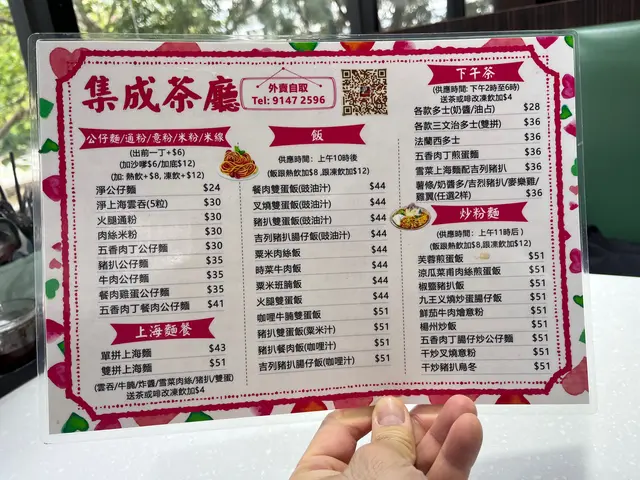 集成茶廳
外賣自取
Tel: 9147 2596
公仔麵/通粉/意粉/米粉/米線
(出前一丁+$6)
(加沙嗲$6/加底$12)
(加: 熱飲+$8, 凍飲+$12)
淨公仔麵 $24
淨上海雲吞(5粒) $30
火腿通粉 $30
肉絲米粉 $30
五香肉丁公仔麵 $30
豬扒公仔麵 $35
牛肉公仔麵 $35
餐肉雞蛋公仔麵 $35
五香肉丁餐肉公仔麵 $41
上海麵餐
單拼上海麵 $43
雙拼上海麵 $51
(雲吞/牛腩/炸醬/雪菜肉絲/豬扒/雙蛋)
送茶或啡改凍飲加$4
飯
供應時間: 上午10時後
(飯跟熱飲加$8,跟凍飲加$12)
餐肉雙蛋飯(豉油汁) $44
叉燒雙蛋飯(豉油汁) $44
豬扒雙蛋飯(豉油汁) $44
吉列豬扒腸仔飯(豉油汁) $44
粟米肉絲飯 $44
時菜牛肉飯 $44
粟米班腩飯 $44
火腿雙蛋飯 $44
咖哩牛腩雙蛋飯 $51
豬扒雙蛋飯(粟米汁) $51
豬扒餐肉飯(咖哩汁) $51
吉列豬扒腸仔飯(咖哩汁) $51
下午茶
(供應時間: 下午2時至6時)
送茶或啡改凍飲加$4
各款多士(奶醬/油占) $28
各款三文治多士(雙拼) $36
法蘭西多士 $36
五香肉丁煎蛋麵 $36
雪菜上海麵配吉列豬扒 $36
薯條/奶醬多/吉烈豬扒/麥樂雞/
雞翼(任選2樣) $36
炒粉麵
(供應時間: 上午11時后)
(飯跟熱飲加$8,跟凍飲加$12)
芙蓉煎蛋飯 $51
涼瓜菜甫肉絲煎蛋飯 $51
椒鹽豬扒飯 $51
九王义燒炒蛋腸仔飯 $51
鮮茄牛肉燴意粉 $51
楊州炒飯 $51
五香肉丁腸仔炒公仔麵 $51
干炒叉燒意粉 $51
干炒豬扒烏冬 $51